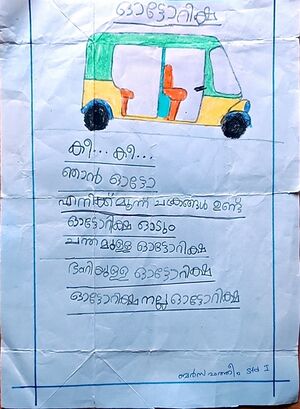 ഓട്ടോറിക്ഷ
കീ... കീ...
ഞാൻ ഓട്ടോ
എനിക്ക് മൂന്ന് ചക്രങ്ങൾ ഉണ്ട്
ഓട്ടോറിക്ഷ ഓടും
ചന്തമുള്ള ഓട്ടോറിക്ഷ
ഭംഗിയുള്ള ഓട്ടോറിക്ഷ
ഓട്ടോറിക്ഷ നല്ല ഓട്ടോറിക്ഷ
Std I